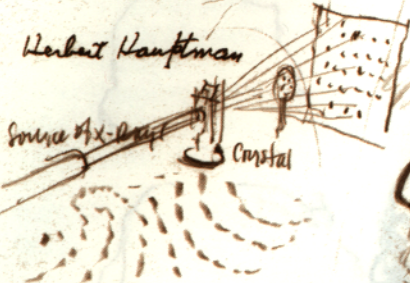 Herbert Hauptman
Source of X-Rays
Crystal